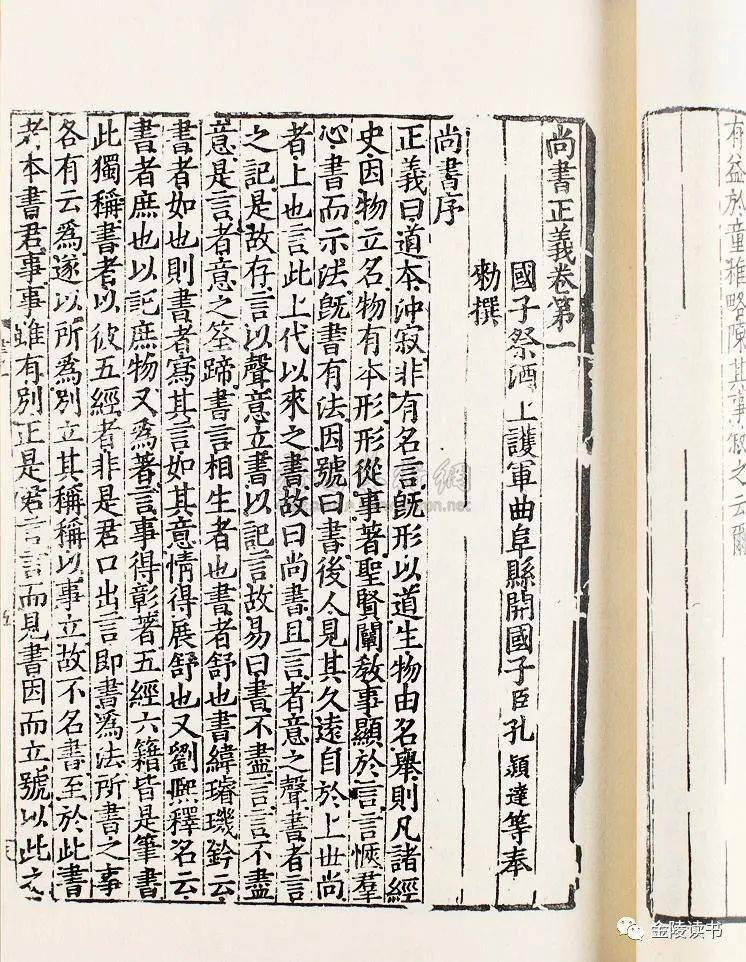 有益於童稚略陳其事叙之云爾
尚書正義卷第一
國子祭酒上護軍曲阜縣開國子臣孔穎達等奉
勑撰
尚書序
正義曰道本沖寂非有名言旣形以道生物由名舉則凡諸經
史因物立名物有本形形從事著聖賢闡敎事顯於言言愜羣
心書而示法旣書有法因號曰書後人見其久遠自於上世尚
者上也言此上代以來之書故曰尚書且言者意之聲書者言
之記是故存言以聲意立書以記言故易曰書不盡言言不盡
意是言者意之筌蹄書言相生者也書者舒也書緯璿璣鈐云
書者如也則書者寫其言如其意情得展舒也又劉熙釋名云
書者庶也以記庶物又爲著言事得彰著五經六籍皆是筆書
此獨稱書者以彼五經者非是君口出言即書爲法所書之事
各有云爲遂以所爲別立其稱稱以事立故不名書至於此書
者本書君事事雖有別正是君言言而見書因而立號以此之
金陵读书